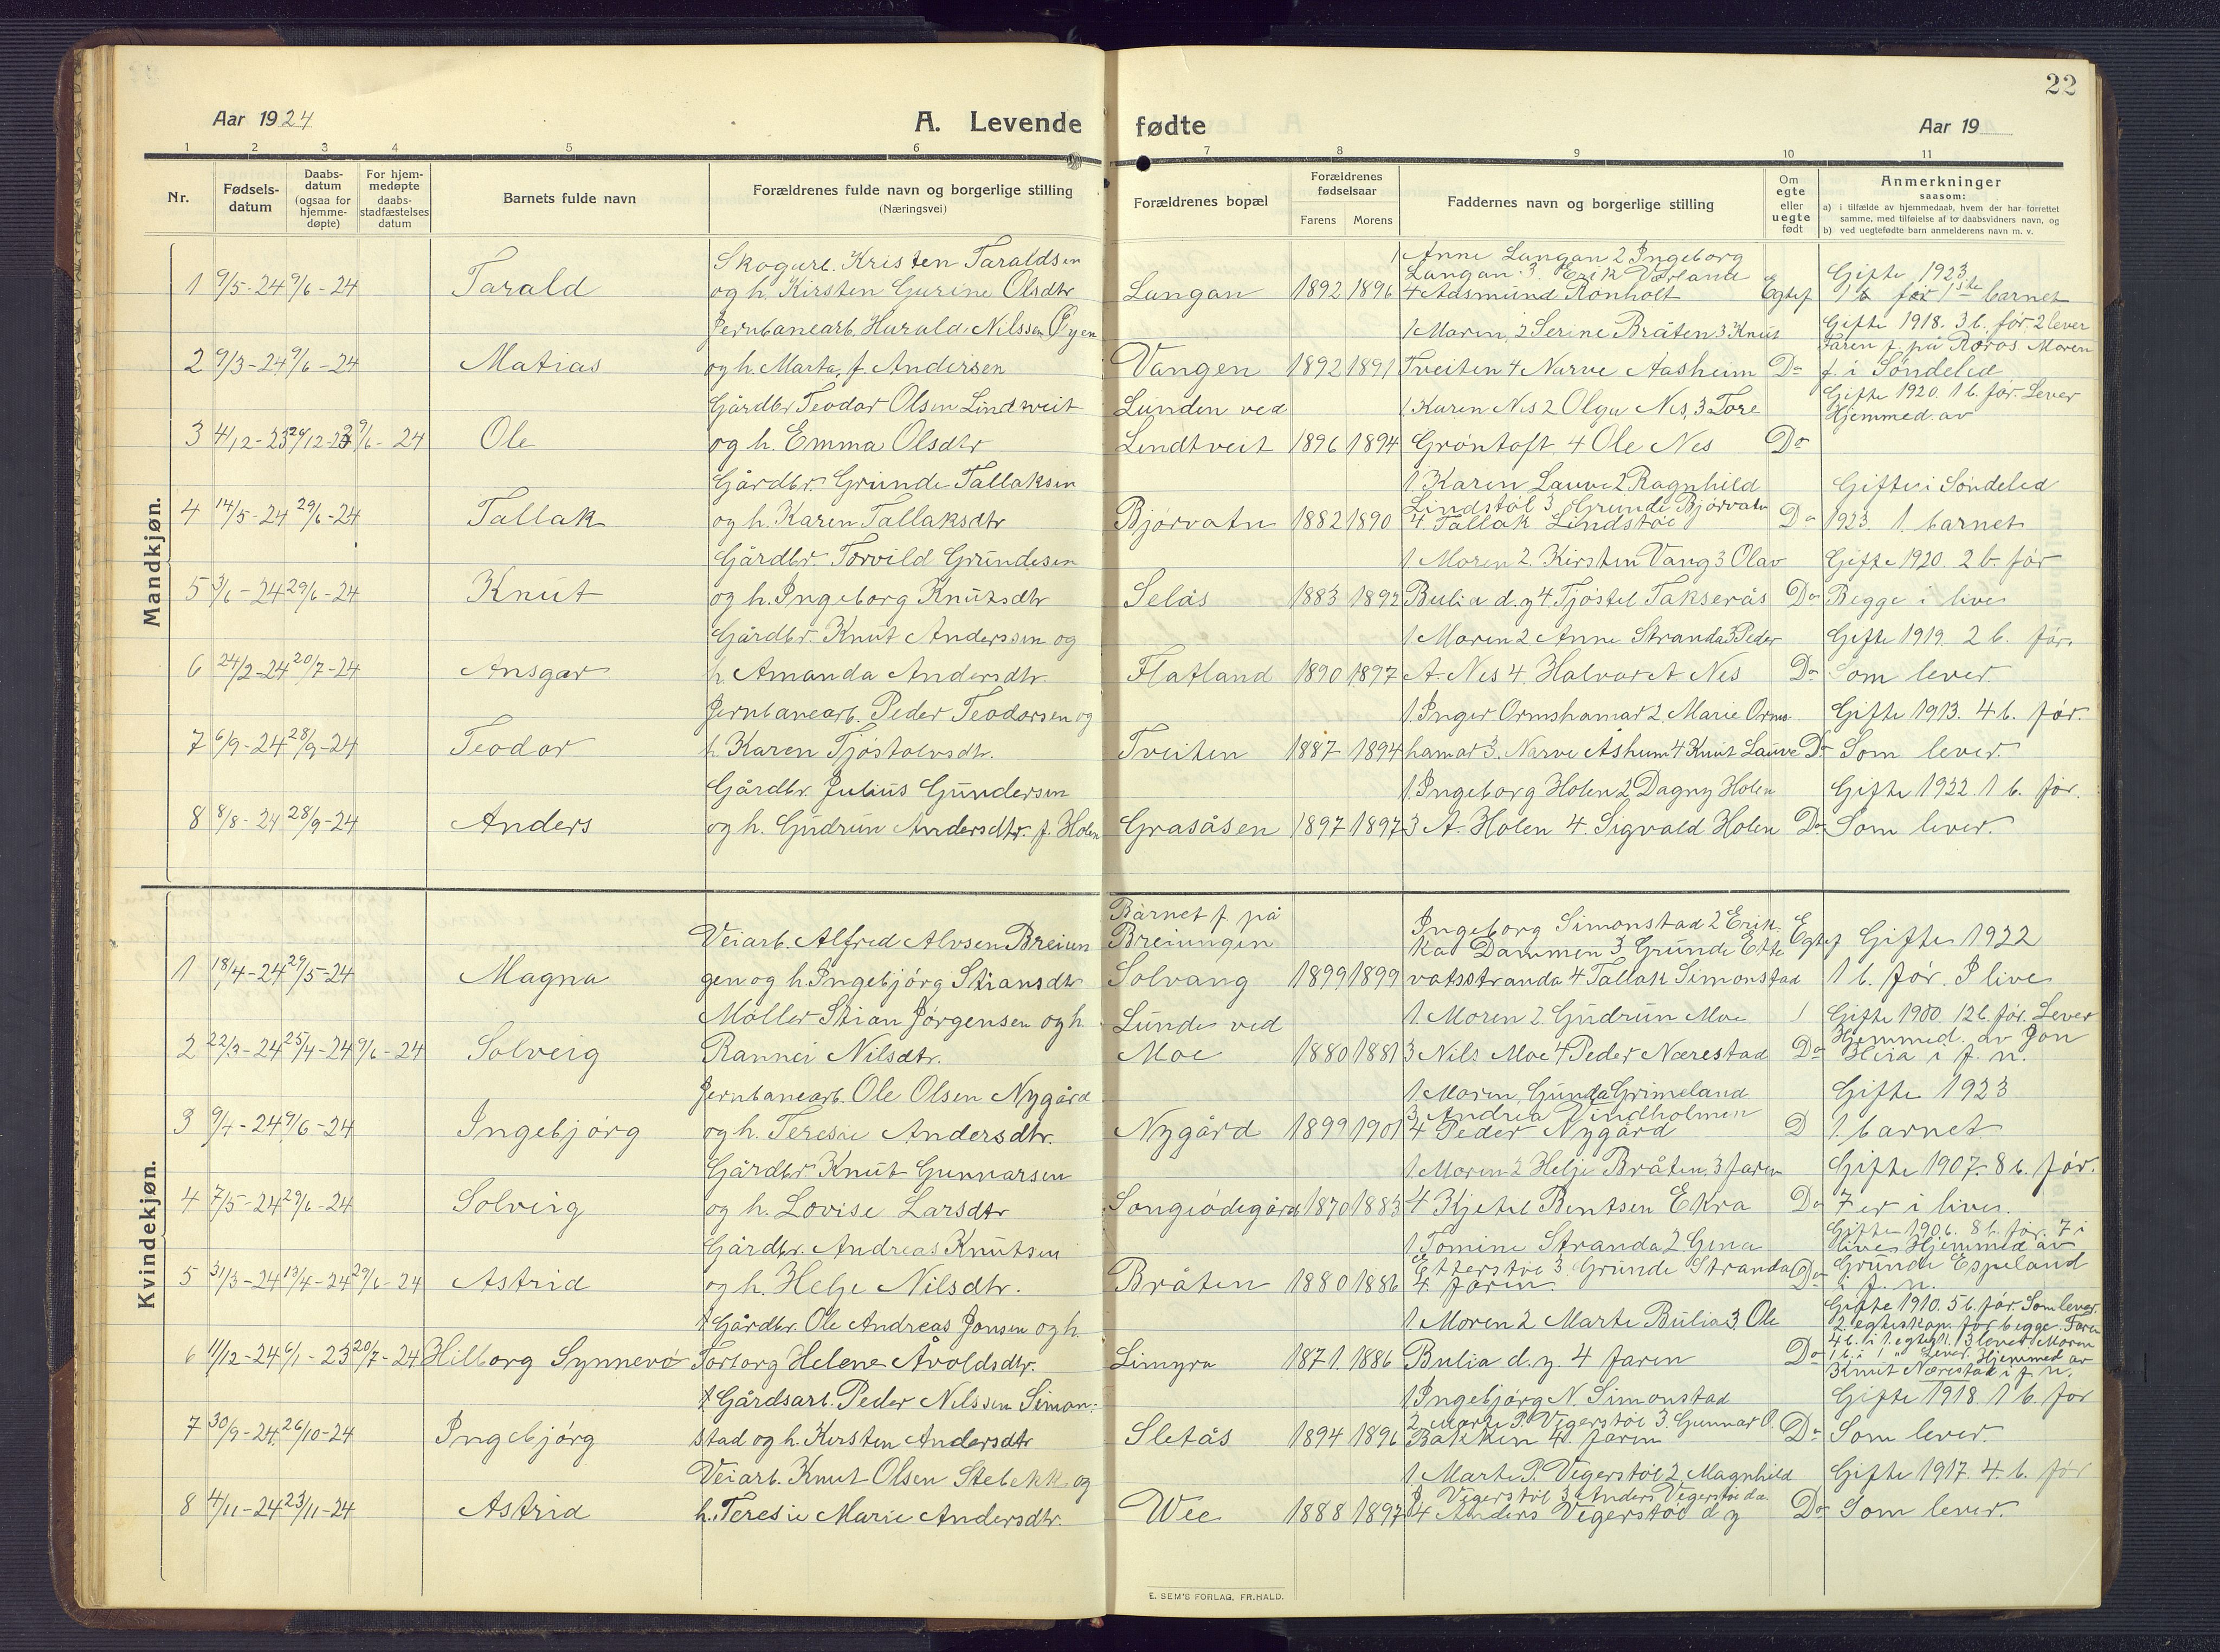 22
Aar 1924
A. Levende fødte
Aar 19
1 2 3 4 5 6 7 8 9 10 11
Nr.
Fødsels-
datum
Daabs-
datum
(ogsaa for
hjemme-
døpte)
For hjem-
medøpte
daabs-
stadfæstelses
datum
Barnets fulde navn
Forældrenes fulde navn og borgerlige stilling
(Næringsvei)
Forældrenes bopæl
Forældrenes
fødselsaar
Farens Morens
Faddernes navn og borgerlige stilling
Om
egte
eller
uegte
født
Anmerkninger
saasom:
a) i tilfælde av hjemmedaab, hvem der har forrettet
samme, med tilføielse af to daabsvidners navn, og
b) ved uegtefødte barn anmelderens navn m. v.
Mandkjøn.
Skogarb. Kristen Taraldsen
1 Anne Langan 2 Ingeborg
Langan 3. Erik Værland
Gifte 1923
1 9/5-24 9/6-24 Tarald og h. Kirsten Gurine Olsdtr Langan 1892 1896 4 Aasmund Rønholt Egtef 1 b før 1ste barnet
Jernbanearb. Harald Nilssen Øyen
1 Moren, 2 Serine Bråten 3 Knut
Gifte 1918. 3 b. før. 2 lever
Faren f. på Røros Moren
2 9/3-24 9/6-24 Matias og h. Marta, f. Andersen Vangen 1892 1891 Tveiten 4 Narve Aasheim Do f. i Søndeled
Gårdbr Teodor Olsen Lindtveit
Lunden ved
1 Karen Nes 2 Olga Nes, 3 Tore
Gifte 1920. 1 b. før. Lever
Hjemmed. av
3 4/12-23 29/12-23 9/6-24 Ole og h. Emma Olsdtr Lindtveit 1896 1894 Grøntoft 4 Ole Nes Do
Gårdbr. Grunde Tallaksen
1 Karen Lauve 2 Ragnhild
Lindstøl 3 Grunde Bjørvatn
Gifte i Søndeled
4 14/5-24 29/6-24 Tallak og h. Karen Tallaksdtr Bjørvatn 1882 1890 4. Tallak Lindstøl Do 1923. 1. barnet
Gårdbr. Torvild Grundesen
1 Moren 2. Kirsten Vang 3 Olav
Gifte 1920. 2 b. før
5 3/6-24 29/6-24 Knut og h. Ingeborg Knutsdtr Selås 1883 1892 Bulia d. y 4 Tjøstel Takserås Do Begge i live
Gårdbr. Knut Anderssen og
1 Moren 2 Anne Stranda 3 Peder
Gifte 1919. 2 b. før.
6 24/2-24 20/7-24 Ansgar h. Amanda Andersdtr. Flatland 1890 1897 A. Nes 4. Halvor A Nes Do Som lever.
Jernbanearb. Peder Teodorsen og
1. Inger Ormshamar 2, Marie Orms
Gifte 1913. 4 b. før.
7 6/9-24 28/9-24 Teodor h. Karen Tjøstolvsdtr. Tveiten 1887 1894 hamar 3. Narve Åsheim 4 Knut Lauve Do Som lever.
Gårdbr. Julius Gundersen
1. Ingeborg Holen 2 Dagny Holen
Gifte 1922. 1 b. før.
8 8/8-24 28/9-24 Anders og h. Gudrun Andersdtr. f. Holen Grasåsen 1897 1897 3 A. Holen 4. Sigvald Holen Do Som lever.
Kvindekjøn.
Barnet f. på
Veiarb. Alfred Alvsen Breiun
Breiungen
Ingeborg Simonstad 2 Erik
ka Dammen 3 Grunde Ette
Egtef Gifte 1922
1 18/4-24 29/5-24 Magna gen og h Ingebjørg Stiansdtr Solvang 1899 1899 vatsstranda 4 Tallak Simonstad 1 b. før. I live
Møller Stian Jørgensen og h
Lunde ved
1. Moren 2 Gudrun Moe
Gifte 1900. 12 b. før. Lever
Hjemmed. av Jon
2 22/3-24 25/4-24 9/6-24 Solveig Rannei Nilsdtr. Moe 1880 1881 3 Nils Moe 4 Peder Nærestad Do i f. n.
Jernbanearb. Ole Olsen Nygård
1 Moren, Gunda Grimeland
3 Andrea Vindholmen
Gifte 1923
3 9/4-24 9/6-24 Ingebjørg og h. Teresie Andersdtr. Nygård 1899 1901 4 Peder Nygård D 1. barnet
Gårdbr. Knut Gunnarsen
1 Moren 2 Helje Bråten, 3 faren
Gifte 1907. 8 b. før.
4 7/5-24 29/6-24 Solveig og h. Lovise Larsdtr Songiødegård 1870 1883 4 Kjetil Bentsen Ekra Do 7 er i live.
Gårdbr. Andreas Knutsen
1 Tomine Stranda 2 Gina
Gifte 1906. 8 b. før. 7 i
live. Hjemmed av
Etterstøl 3. Grunde Stranda
Grunde Espeland
5 31/3-24 13/4-24 29/6-24 Astrid og h. Helje Nilsdtr. Bråten 1880 1886 4. faren. Do i f. n.
Gårdbr. Ole Andreas Jonsen og h
1. Moren 2 Marte Bulia 3 Ole
Gifte 1910. 5 b. før. Som lever.
2. egteskap. for begge. Faren
4 b. i 1. egtsk. 3 lever. Moren
6 11/12-24 6/1-23 20/7-24 Hilborg Synnevø Torborg Helene Åvoldsdtr. Limyra 1871. 1886 Bulia d. y. 4 faren Do 1 b. i 1 " Lever. Hjemmed av
Knut Nærestad i f. n.
Gårdsarb. Peder Nilssen Simon-
1 Ingebjørg N. Simonstad
2 Marte P. Vigerstøl 3. Gunnar O.
Gifte 1918 1 b. før
7 30/9-24 26/10-24 Ingebjørg stad og h. Kirsten Andersdtr Sletås 1894 1896 Bakken 4. faren Do Som lever.
Veiarb. Knut Olsen Stebekk og
1. Marte P. Vigerstøl 2 Magnhild
Vigerstøl 3 Anders Vigerstøl d. e.
Gifte 1917. 4. b. før
8 4/11-24 23/11-24 Astrid h. Teresie Marie Andersdtr. Wee 1888 1897 4 Anders Vigerstøl d y Do Som lever.
E. SEM'S FORLAG, FR.HALD.